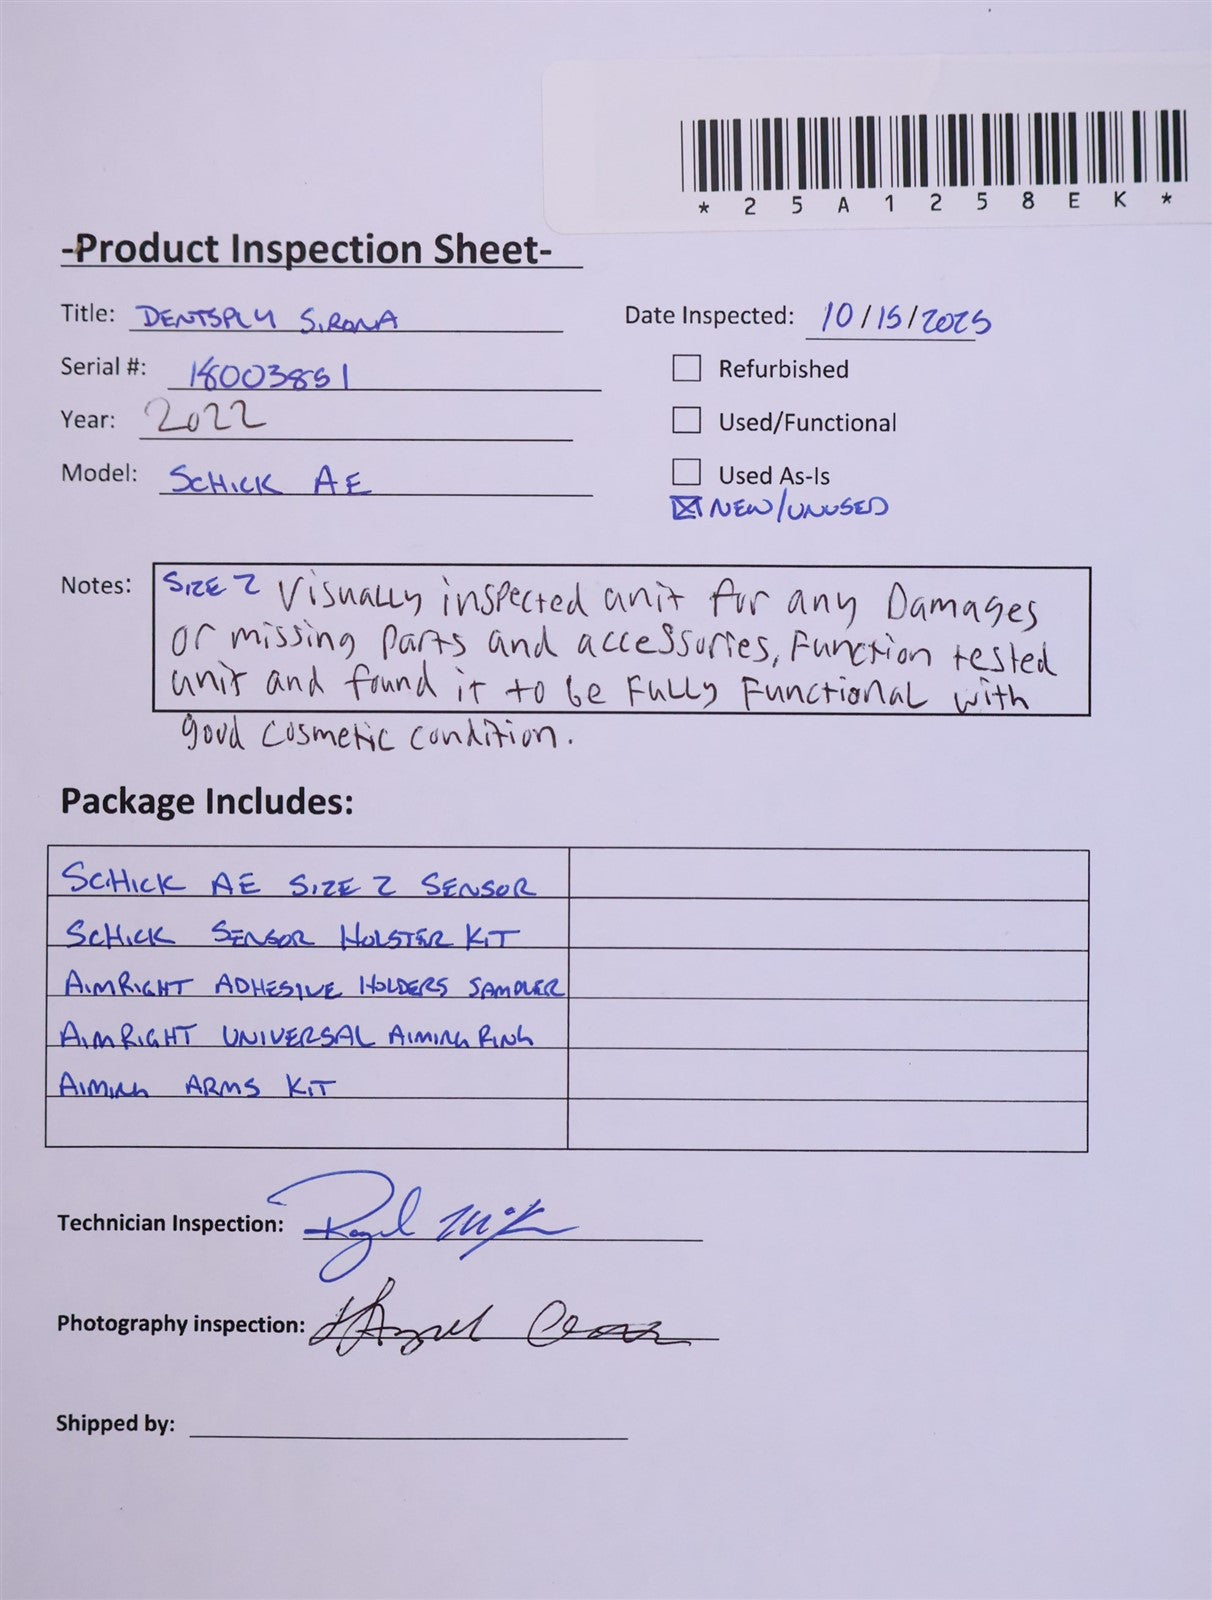 *25A1258EK*
-Product Inspection Sheet-
Title: DENTSPLY SIRONA
Date Inspected: 10/15/2025
Serial #: 180038851
Refurbished
Year: 2022
Used/Functional
Model: SCHICK AE
Used As-Is
NEW/UNUSED
Notes: SIZE 2 Visually inspected unit for any Damages
or missing parts and accessories, Function tested
unit and found it to be Fully Functional with
good cosmetic condition.
Package Includes:
SCHICK AE SIZE 2 SENSOR
SCHICK SENSOR HOLSTER KIT
AIMRIGHT ADHESIVE HOLDERS SAMPLER
AIMRIGHT UNIVERSAL AIMING RING
AIMING ARMS KIT
Technician Inspection:
Photography inspection:
Shipped by: